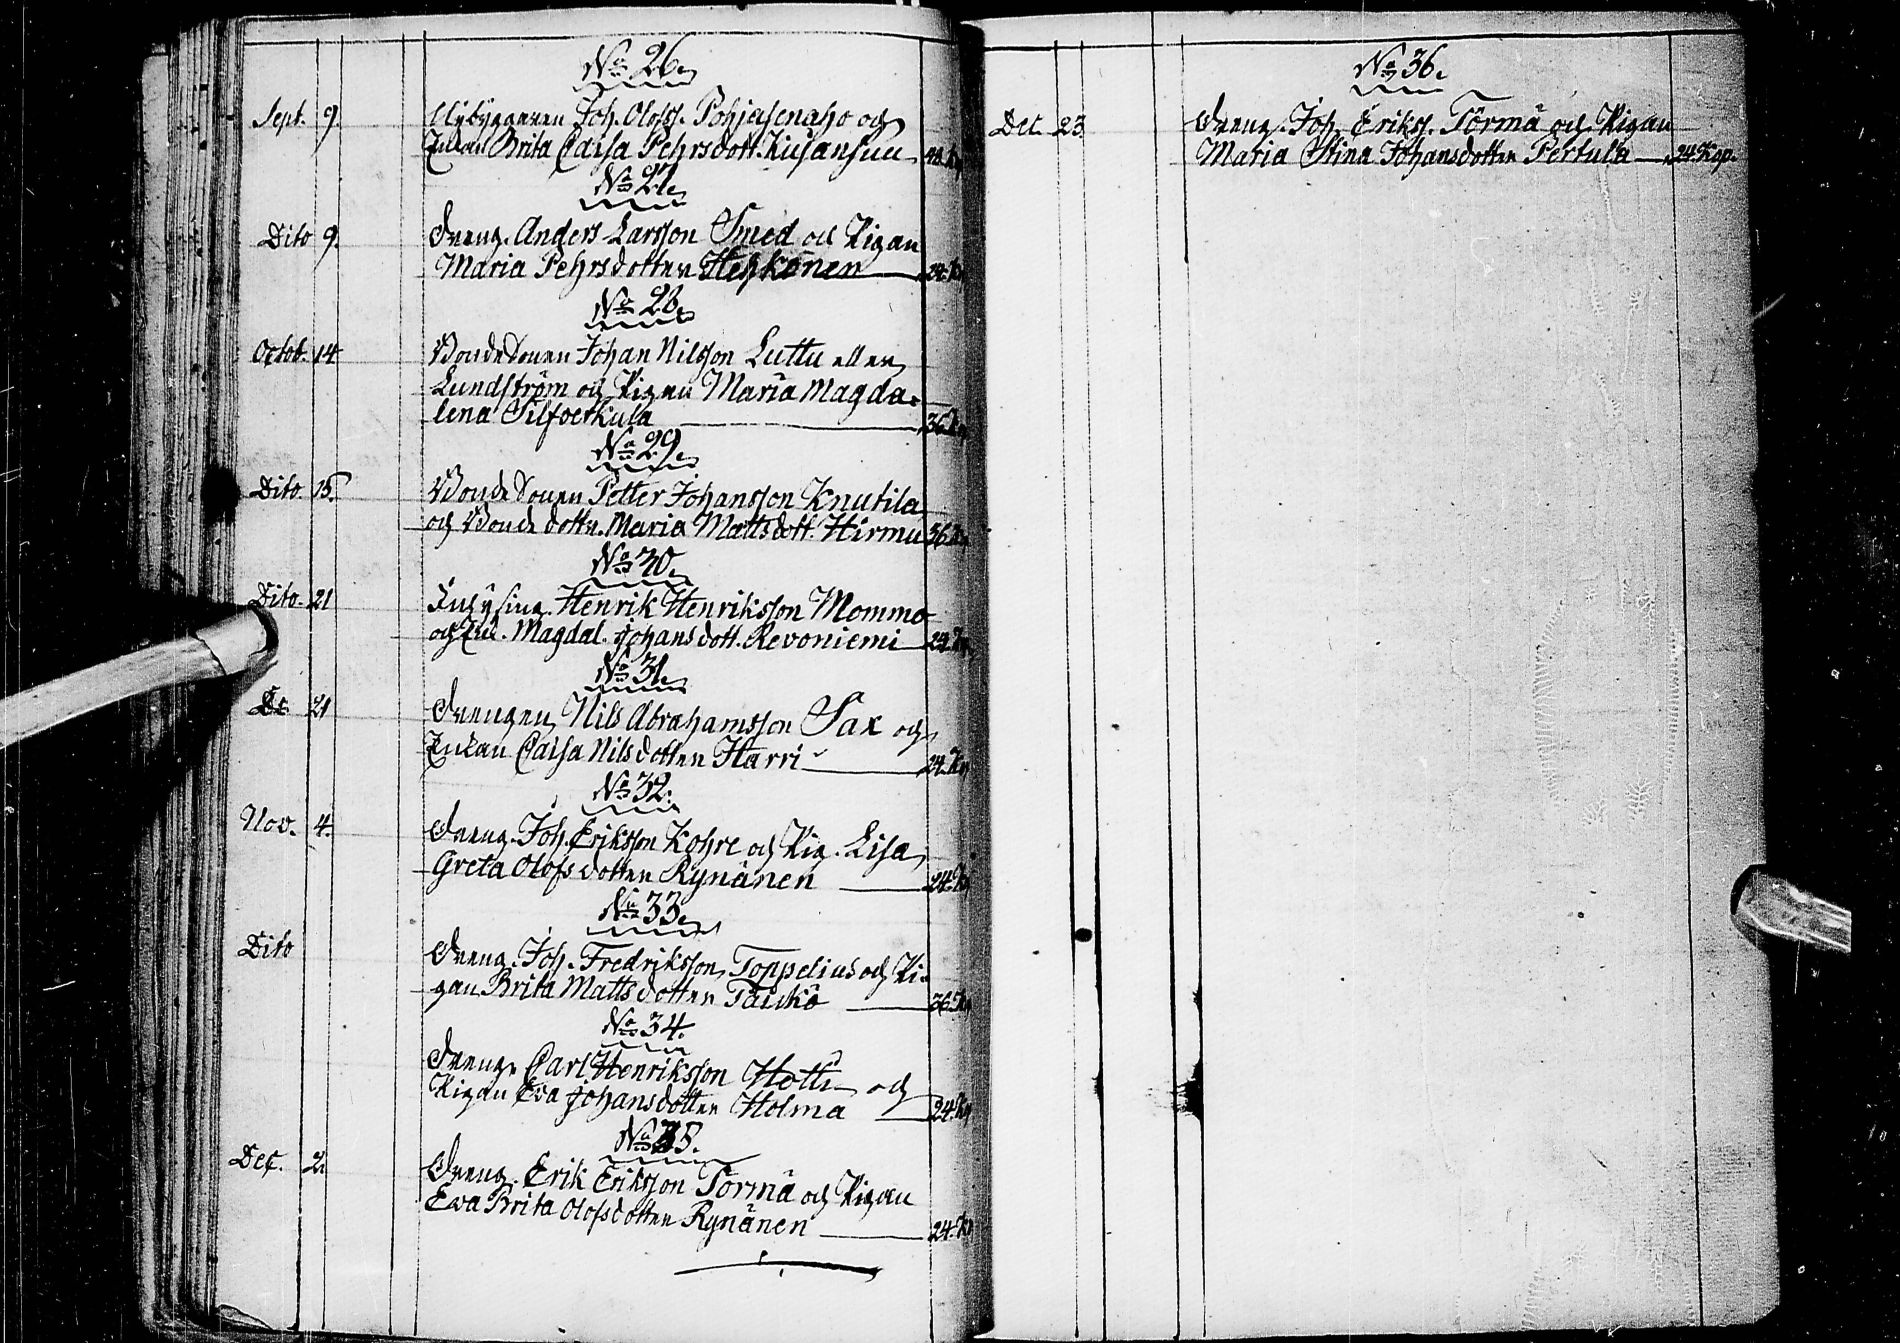 No 26.
Sept. 9. Nybyggaren Joh. Olofss. Pohjasenaho och
Enkan Brita Caisa Pehrsdott. Kusansuu 24 Kop
No 27.
Dito 9. Dreng. Anders Larsson Smed och Pigan
Maria Pehrsdotter Heikonen 24 Kop
No 28.
Octob. 14 Bondesonen Johan Nilsson Luttu eller
Lundström och Pigan Maria Magda-
lena Silfverkula 36 Kop
No 29.
Dito 15. Bondesonen Petter Johansson Knutila
och Bondedottr. Maria Mattsdott. Hirmu 36 Kop
No 30.
Dito. 21 Inhysing. Henrik Henriksson Mommo
och Enk. Magdal. Johansdott. Revoniemi 24 Kop
No 31.
Do 21 Drengen Nils Abrahamsson Sax och
Enkan Caisa Nilsdotter Harri 24. Kop
No 32.
Nov. 4. Dreng. Joh. Eriksson Kohre och Pig. Lisa
Greta Olofsdotter Rynänen 24. Kop
No 33.
Dito Dreng. Joh. Fredriksson Toppelius och Pi-
gan Brita Mattsdotter 36 Kop
No 34.
Dreng. Carl Henriksson Hotti och
Pigan Eva Johansdotter Holma 24. Kop
No 35.
Dec. 2. Dreng. Erik Eriksson Törmä och Pigan
Eva Brita Olofsdotter Rynänen 24. Kop
No 36.
Dec. 23. Dreng. Joh. Erikss. Törmä och Pigan
Maria Stina Johansdotter Pertula 24 Kop.